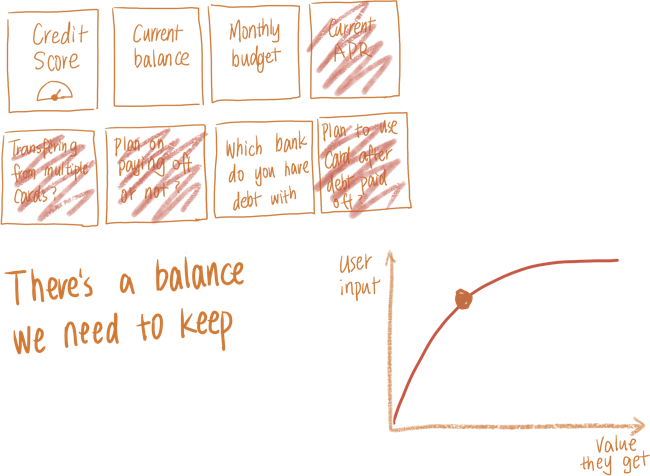 Credit
Score
Current
balance
Monthly
budget
Current
APR
Transfering
from multiple
Cards?
Plan on
paying off
or not?
Which bank
do you have
debt with
Plan to use
Card after
debt paid
off?
There's a balance
we need to keep
user
input
Value
they get